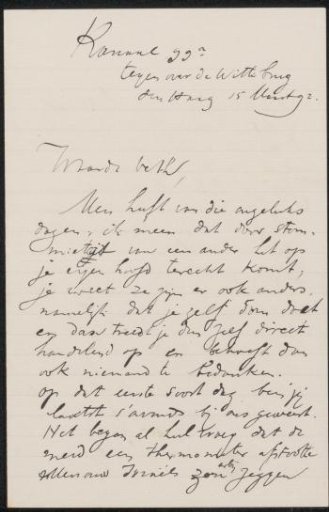 Kanaal 99a
tegen over de Witte brug
den Haag 15 Maart 92.
Waarde Veth,
Men heeft van die ongeluks
dagen, ik meen dat door stom-
miteit van een ander het op
je eigen hoofd terecht komt,
je weet ze zijn er ook anders.
namelijk dat je zelf dom doet
en dan treedt je dus zelf direct
handelend op en behoeft dan
ook niemand te bedanken.
op dat eerste soort dag ben jij
laatst s'avonds bij ons geweest.
Het begon al heel vroeg dat de
meid een thermometer afstootte
Israels zou zeggen